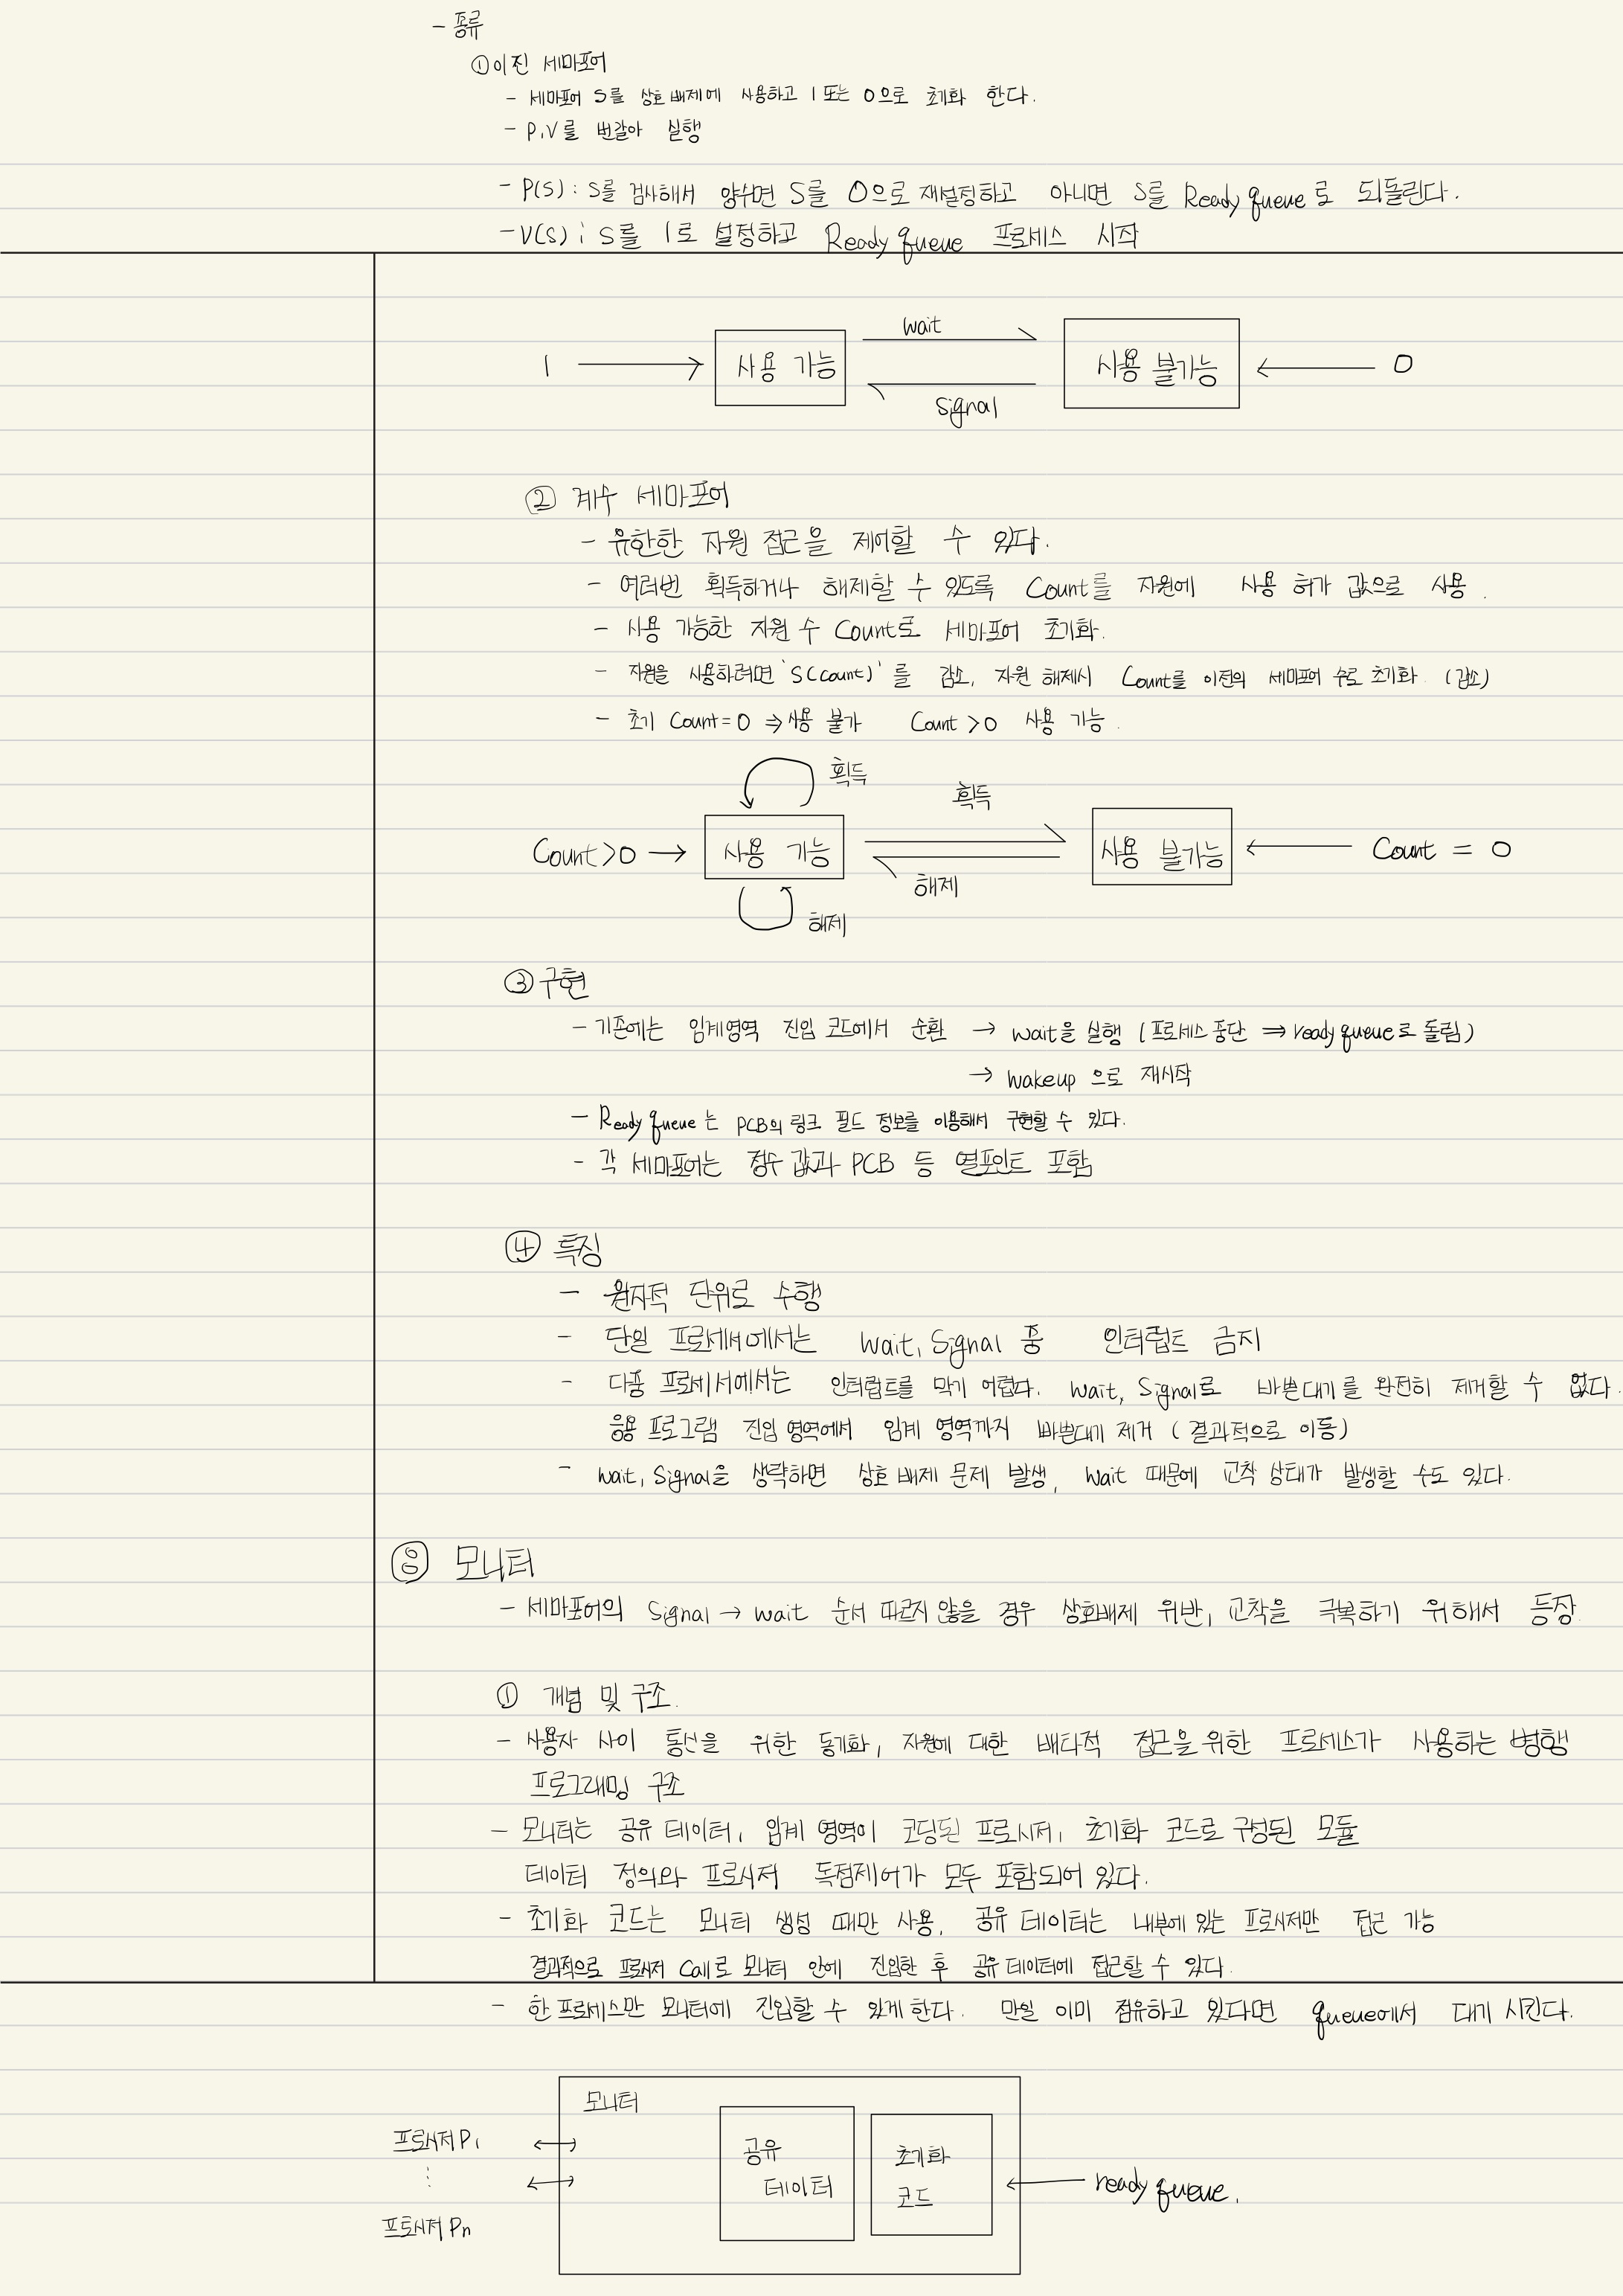 - 종류
① 이진 세마포어
- 세마포어 S를 상호배제에 사용하고 1 또는 0으로 초기화 한다.
- P,V를 번갈아 실행
- P(S) : S를 검사해서 양수면 S를 0으로 재설정하고 아니면 S를 Ready queue로 되돌린다.
- V(S) : S를 1로 설정하고 Ready queue 프로세스 시작
wait
1 → 사용 가능 사용 불가능 ← 0
signal
② 계수 세마포어
- 유한한 자원 접근을 제어할 수 있다.
- 여러번 획득하거나 해제할 수 있도록 Count를 자원에 사용 허가 값으로 사용.
- 사용 가능한 자원 수 Count로 세마포어 초기화.
- 자원을 사용하려면 'S(count)'를 감소, 자원 해제시 Count를 이전의 세마포어 수로 초기화. (감소)
- 초기 Count=0 ⇒ 사용 불가 Count >0 사용 가능.
획득
획득
Count>0 → 사용 가능 사용 불가능 ← Count = 0
해제
해제
③ 구현
- 기존에는 임계영역 진입 코드에서 순환 → wait을 실행 (프로세스 중단 ⇒ ready queue로 돌림)
→ wakeup 으로 재시작
- Ready queue는 PCB의 링크 필드 정보를 이용해서 구현할 수 있다.
- 각 세마포어는 정수 값과 PCB 등 열포인트 포함
④ 특징
- 원자적 단위로 수행
- 단일 프로세서에서는 wait, Signal 중 인터럽트 금지
- 다중 프로세서에서는 인터럽트를 막기 어렵다. wait, Signal로 바쁜대기를 완전히 제거할 수 없다.
응용 프로그램 진입 영역에서 임계 영역까지 바쁜대기 제거 (결과적으로 이동)
- wait, Signal을 생략하면 상호 배제 문제 발생, wait 때문에 교착 상태가 발생할 수도 있다.
⑧ 모니터
- 세마포어의 Signal → wait 순서 따르지 않을 경우 상호배제 위반, 교착을 극복하기 위해서 등장
① 개념 및 구조.
- 사용자 사이 통신을 위한 동기화, 자원에 대한 배타적 접근을 위한 프로세스가 사용하는 병행
프로그래밍 구조
- 모니터는 공유 데이터, 임계 영역이 코딩된 프로시저, 초기화 코드로 구성된 모듈
데이터 정의와 프로시저 독점제어가 모두 포함되어 있다.
- 초기화 코드는 모니터 생성 때만 사용, 공유 데이터는 내부에 있는 프로시저만 접근 가능
결과적으로 프로시저 Call로 모니터 안에 진입한 후 공유 데이터에 접근할 수 있다.
- 한 프로세스만 모니터에 진입할 수 있게 한다. 만일 이미 점유하고 있다면 queue에서 대기 시킨다.
모니터
프로시저 P1
⋮
프로시저 Pn
공유
데이터
초기화
코드
← ready queue.